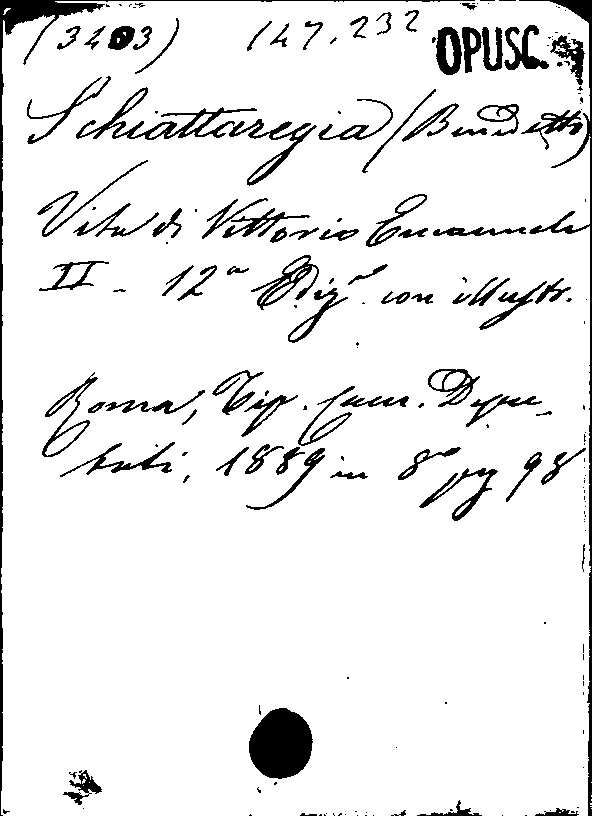 (3403) 147.232 OPUSC.
Schiattaregia (Benedetto)
Vita di Vittorio Emanuele
II - 12ª Edizne con illustr.
Roma, Tip. Cam. Depu-
tati, 1889 in 8º pag 98